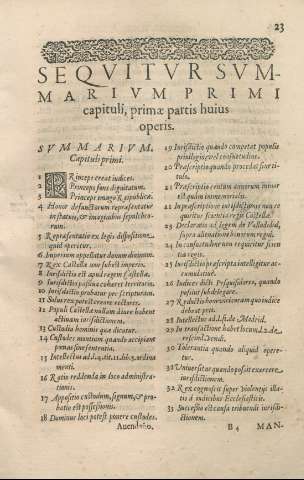 23
SEQVITVR SVM-
MARIVM PRIMI
capituli, primæ partis huius
operis.
SVMMARIVM.
Capituli primi.
1 PRinceps creat iudices.
2 Princeps fons dignitatum.
3 Princeps imago Reipublicæ.
4 Honor defunctorum repræsentatur
in statuis, & imaginibus sepulchro-
rum.
5 Repræsentatio ex legis dispositione
quid operetur.
6 Imperium appellatur
7 Rex Castellæ
8 Iurisdictio est apud regem Castellæ.
9 Iurisdictio
10 Iurisdictio probatur per scripturam.
11 Solus rex potest creare rectores.
12 Populi Castellæ nullam habent
actionem iurisdictionem.
13 Custodia hominis quæ dicatur.
14 Custodes montium quando accipiant
pœnas
15 Intellectus ad l.
menti
16 Ratio reddenda in loco administra-
tionis.
17 Appositio custodum, signum, & pro-
batio est possessionis.
18 Dominus loci potest ponere custodes.
Auendaño.
19 Iurisdictio quando competat populis
privilegio, vel consuetudine.
20 Præscriptio quando procedat sine ti-
tulo.
21 Præscriptio centum annorum
est quam immemorialis.
22 In præscriptione iurisdictionis non re
quiritur scientia regis Castellæ.
23 Declaratio ad legem de Valladolid,
supra alienatione bonorum regni.
24 In consuetudine non requiritur scien
tia regis.
25 Iurisdictio præscripta intelligitur ac-
cumulatiuè.
26 Iudices dicti Pesquisidores, quando
possint subdelegare.
27 Reductio bonorum quomodo
debeat
28 Intellectus ad l. de Madrid.
29 In transactione habet locum l. 2. de
rescind. vendi.
30 Tolerantia quando aliquid opere-
tur.
31 Vniuersitas quando possit exercere
iurisdictionem.
32 Rex cognoscit super violentijs illa-
tis à iudicibus Ecclesiasticis.
33 Successio est causa tribuendi iurisdi-
ctionem.
B 4 MAN-